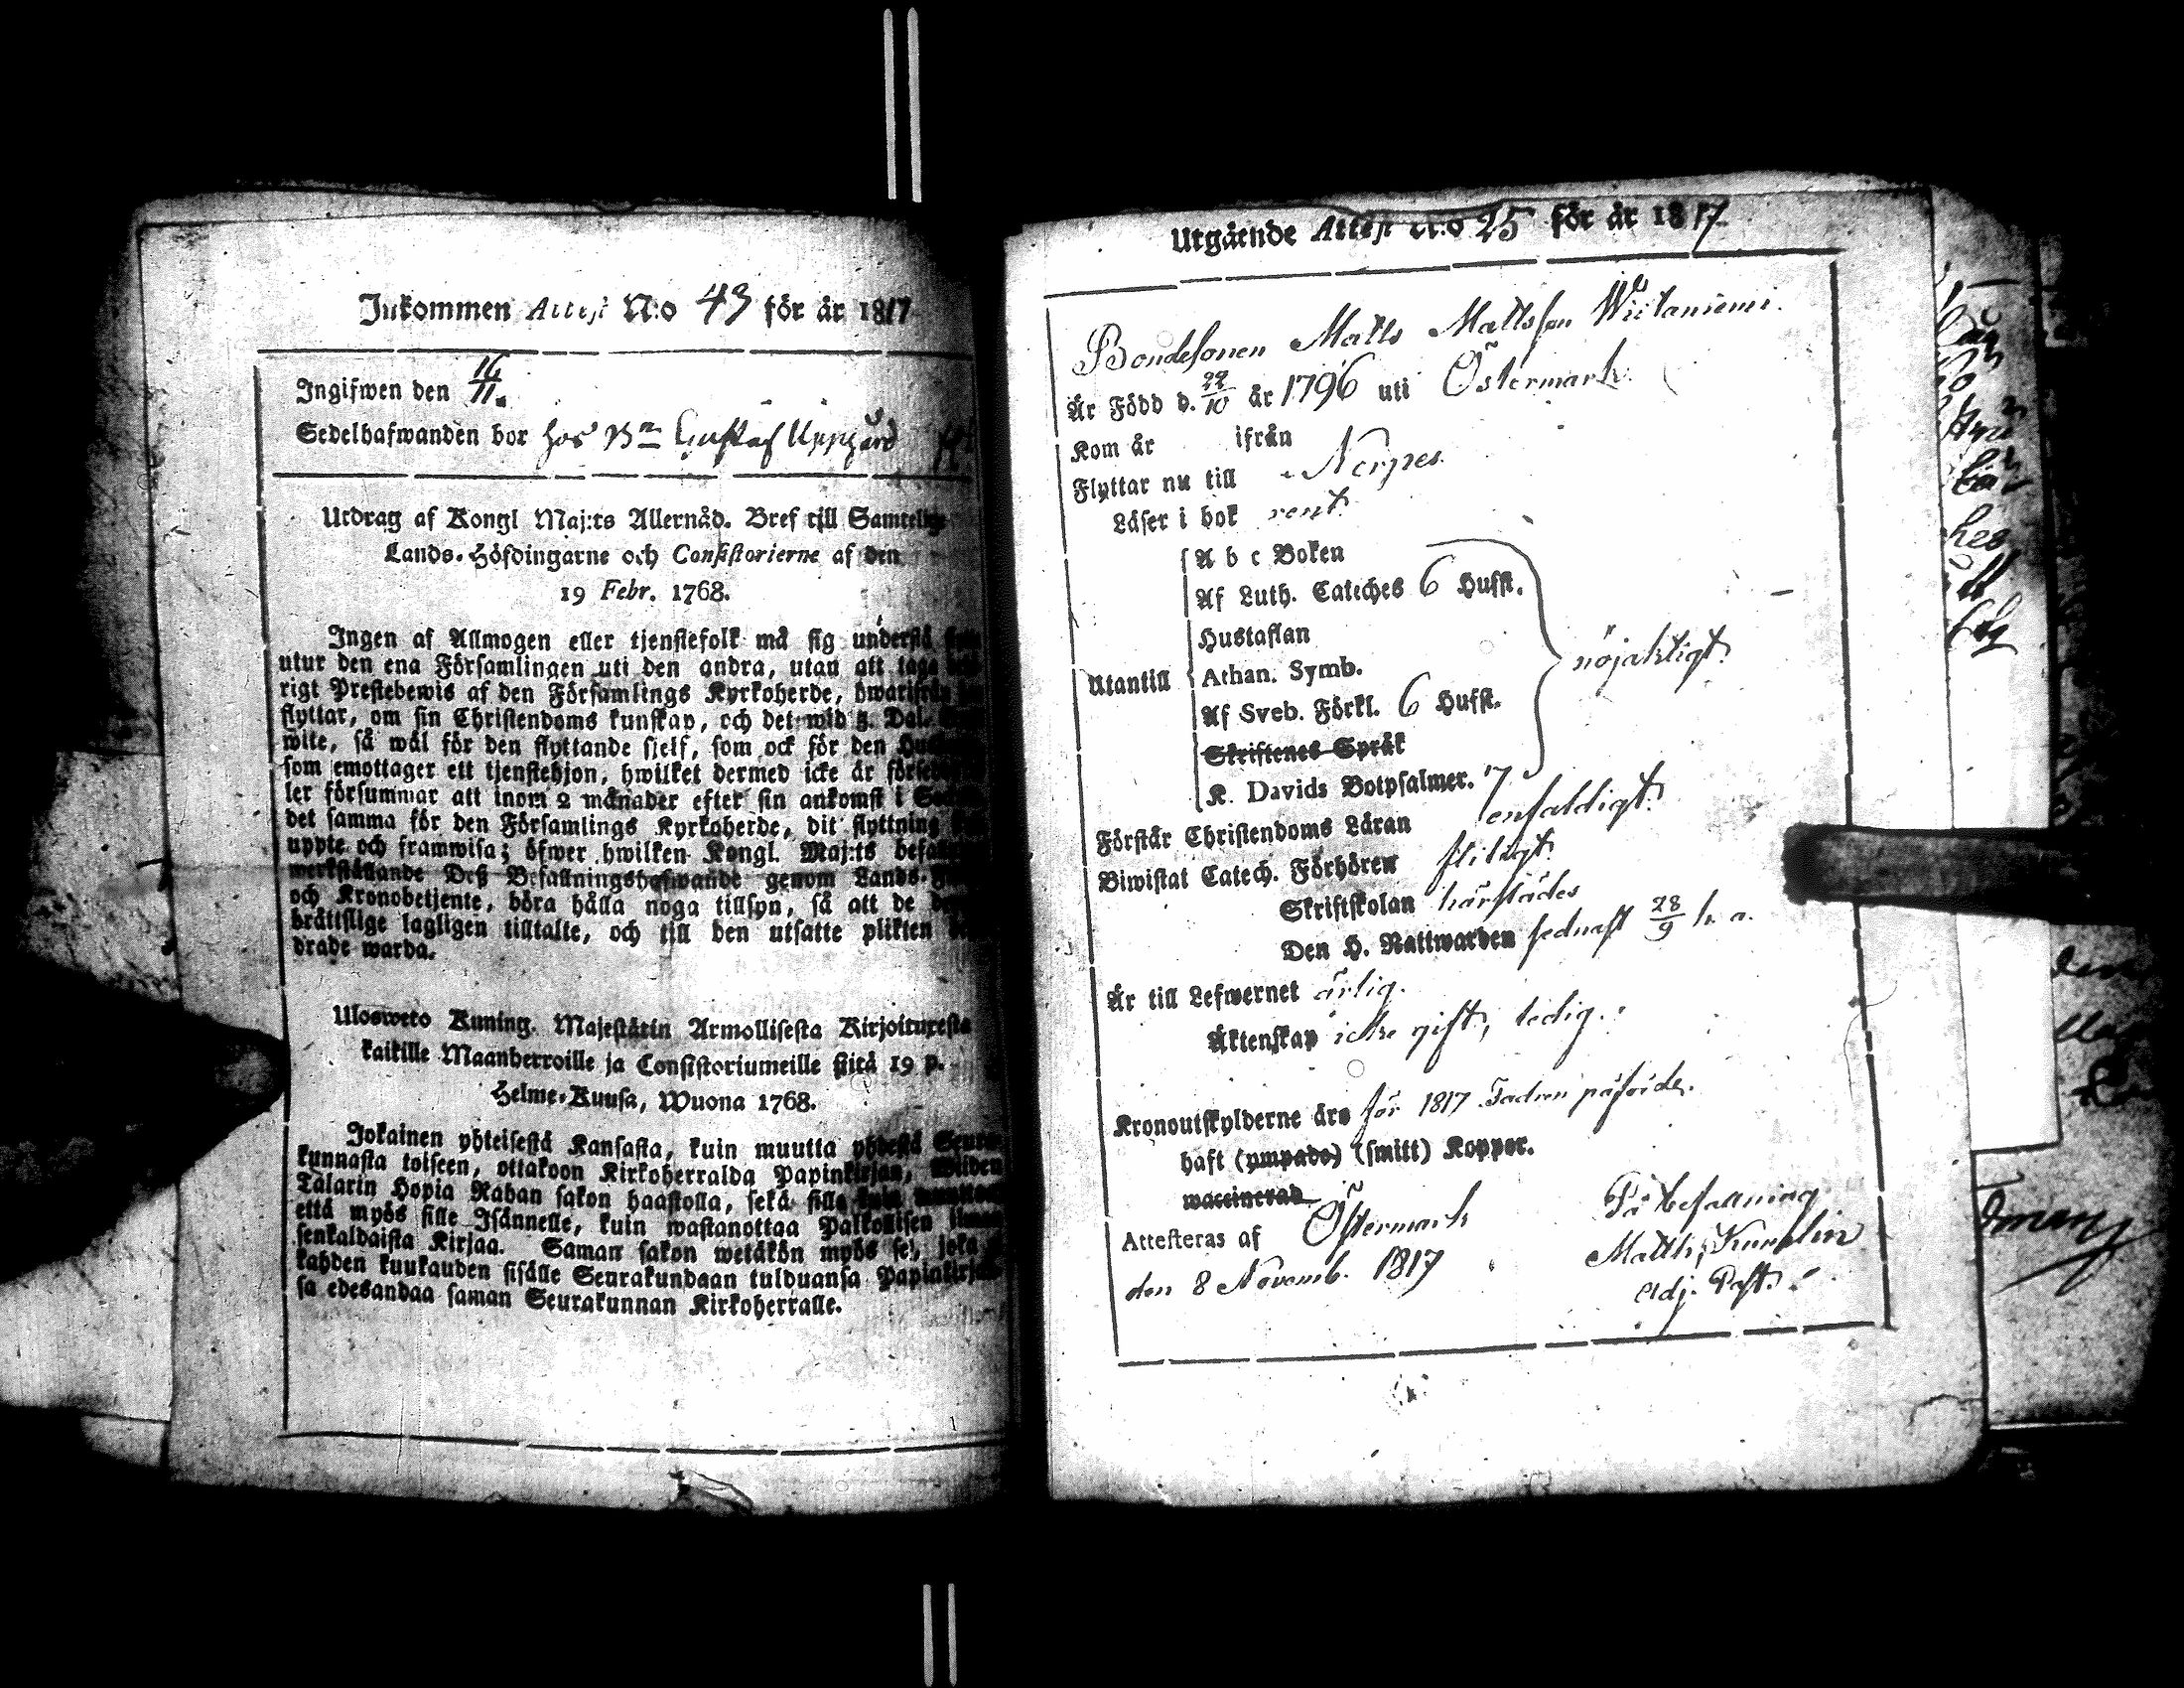 Inkommen Attest N:o 43 för år 1817
Ingifwen den 16/11.
Sedelhafwanden bor hos Bn Gustaf Uppgård
Utdrag af Kongl Maj:ts Allernåd. Bref till Samtelige
Lands-Höfdingarne och Consistorierne af den
19 Febr. 1768.
Ingen af Allmogen eller tjenstefolk må sig understå
utur den ena Församlingen uti den andra, utan att taga
rigt Prestebewis af den Församlings Kyrkoherde, hwarifrån
flyttar, om sin Christendoms kunskap, och det wid 3. Dal.
wite, så wäl för den flyttande sjelf, som ock för den
som emottager ett tjenstehjon, hwilket dermed icke är
ler försummar att inom 2 månader efter sin ankomst i
det samma för den Församlings Kyrkoherde, dit flyttning
uppte och framwisa; öfwer hwilken Kongl. Maj:ts
werkställande Deß Befallningshafwande genom Lands-
och Kronobetjente, böra hålla noga tillsyn, så att de
brättslige lagligen tilltalte, och till den utsatte plikten
drade warda.
Ulosweto Kuning. Majestätin Armollisesta Kirjoituxesta
kaikille Maanherroille ja Consistoriumeille siitä 19 p.
Helme-Kuusa, Wuona 1768.
Jokainen yhteisestä Kansasta, kuin muutta yhdestä
kunnasta toiseen, ottakoon Kirkoherralda Papinkirjan, Wiiden
Talarin Hopia Rahan sakon haastolla, sekä sille kuin
että myös sille Isännelle, kuin wastanottaa Palkollisen ilman
senkaldaista Kirjaa. Saman sakon wetäkön myös se, joka
kahden kuukauden sisälle Seurakundaan tulduansa Papinkirjan
sa edesandaa saman Seurakunnan Kirkoherralle.
Utgående Attest N:o 25 för år 1817
Bondesonen Matts Mattsson Wiitaniemi.
Är Född d. 22/10 år 1796 uti Östermark.
Kom år ifrån
Flyttar nu till Nerpes.
Läser i bok rent.
A b c Boken
Af Luth. Cateches 6 Hufst.
Hustaflan
Utantill Athan. Symb. nöjaktigt.
Af Sveb. Förkl. 6 Hufst.
Skriftenes Språk
K. Davids Botpsalmer. 7
Förstår Christendoms Läran enfaldigt.
Biwistat Catech. Förhören flitigt.
Skriftskolan härstädes
Den H. Nattwarden sednast 28/9 h. a.
Är till Lefwernet ärlig.
Äktenskap icke gift, ledig.
Kronoutskylderne äro för 1817 Fadren påförde.
haft (ympade) (smitt) Koppor.
waccinerad
Attesteras af Östermark
den 8 Novemb. 1817
På befallning
Matth. Kumblin
Adj. Past.